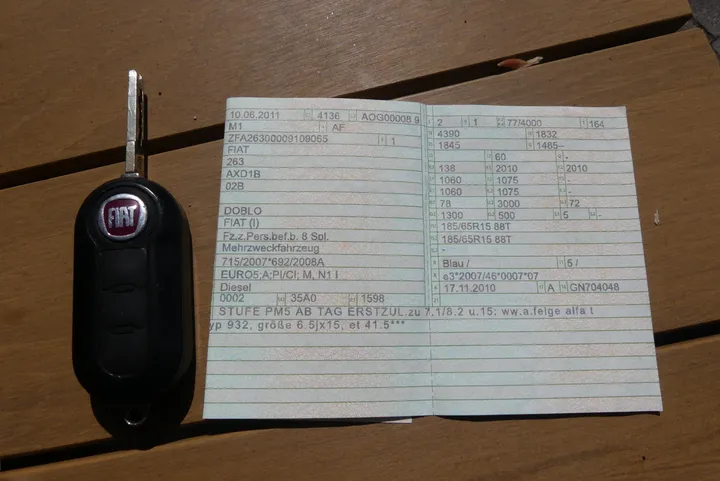 FIAT
10.06.2011 4136 AOG00008 9
M1 AF
ZFA26300009109065 1
FIAT
263
AXD1B
02B
DOBLO
FIAT (I)
Fz.z.Pers.bef.b. 8 Spl.
Mehrzweckfahrzeug
715/2007*692/2008A
EURO5;A;PI/CI; M, N1 I
Diesel
0002 35A0 1598
2 1 77/4000 164
4390 1832
1845 1485–
60 -
138 2010 2010
1060 1075 -
1060 1075 -
78 3000 72
1300 500 5 -
185/65R15 88T
185/65R15 88T
-
Blau / 5 /
e3*2007/46*0007*07
17.11.2010 A GN704048
STUFE PM5 AB TAG ERSTZUL.zu 7.1/8.2 u.15: ww.a.felge alfa t
yp 932, größe 6.5jx15, et 41.5***